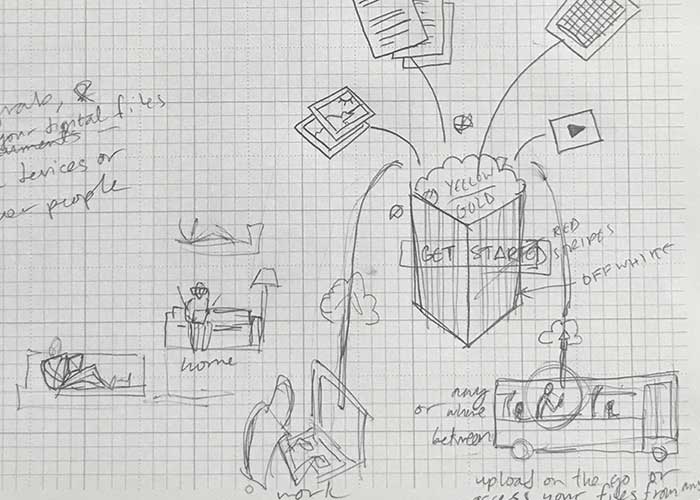 your digital files
devices or
people
YELLOW
GOLD
GET STARTED
RED
STRIPES
OFFWHITE
home
work
any
or where
between
upload on the go or
access your files from